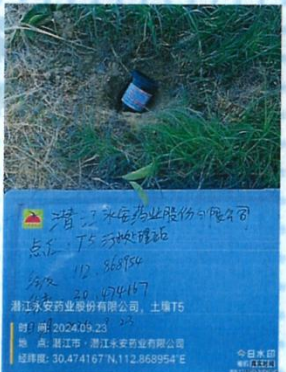 潜江永安药业股份有限公司
点位: T5 污水处理站
112.868954
30.474167
潜江永安药业股份有限公司,土壤T5
时 间: 2024.09.23
地 点: 潜江市·潜江永安药业有限公司
经纬度: 30.474167°N,112.868954°E
今日水印